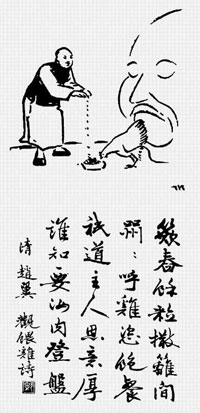 簸舂餘粒撒籬間
呼雞恣飽餐
祇道主人恩意厚
誰知要汝肉登盤
清 趙翼 觀餵雞詩